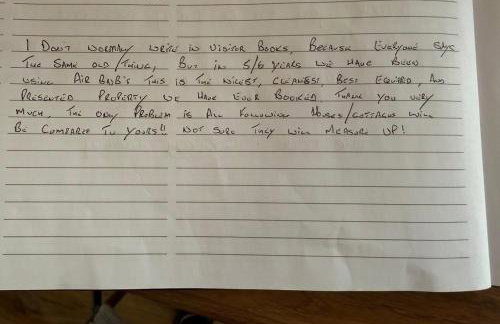 I DON'T NORMALLY WRITE IN VISITER BOOKS, BECAUSE EVERYONE SAYS
THE SAME OLD/THING, BUT IN 5/6 YEARS WE HAVE BEEN
USING AIR BNB'S THIS IS THE NICEST, CLEANEST, BEST EQUIPED, AND
PRESENTED PROPERTY WE HAVE EVER BOOKED THANK YOU VERY
MUCH. THE ONLY PROBLEM IS ALL FOLLOWING HOUSES/COTTAGES WILL
BE COMPARED TO YOURS!! NOT SURE THEY WILL MEASURE UP!